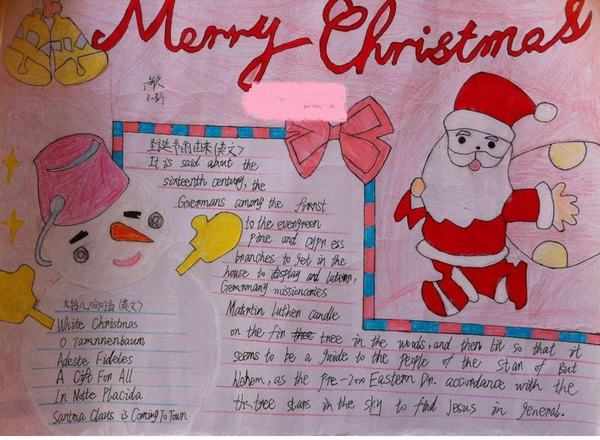 Merry Christmas
圣诞节的由来(英文)
It is said about the
sixteenth century, the
Goermans among the firnst
to the evergreen
pine and cypr ess
branches to get in the
house to display and latern,
Germmany missioncries
Matrtin luthen candle
on the fin tree in the words, and then lit so that it
seems to be a guide to the people of the stan of But
as the pre-2on Eastern in accordance with the
tree stars in the sky to find Jesus in general.
(英文)
White Christmas
O Tannnenbaum
Adeste Fideles
A Gift For All
In Note Placida
Santna Claus is Coming To Town